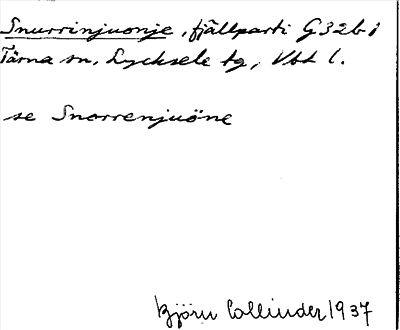 Snurrinjuonje, fjällparti G32b i
Tärna sn, Lycksele tg, Vbt l.
se Snorrenjuöne
Björn Collinder 1937